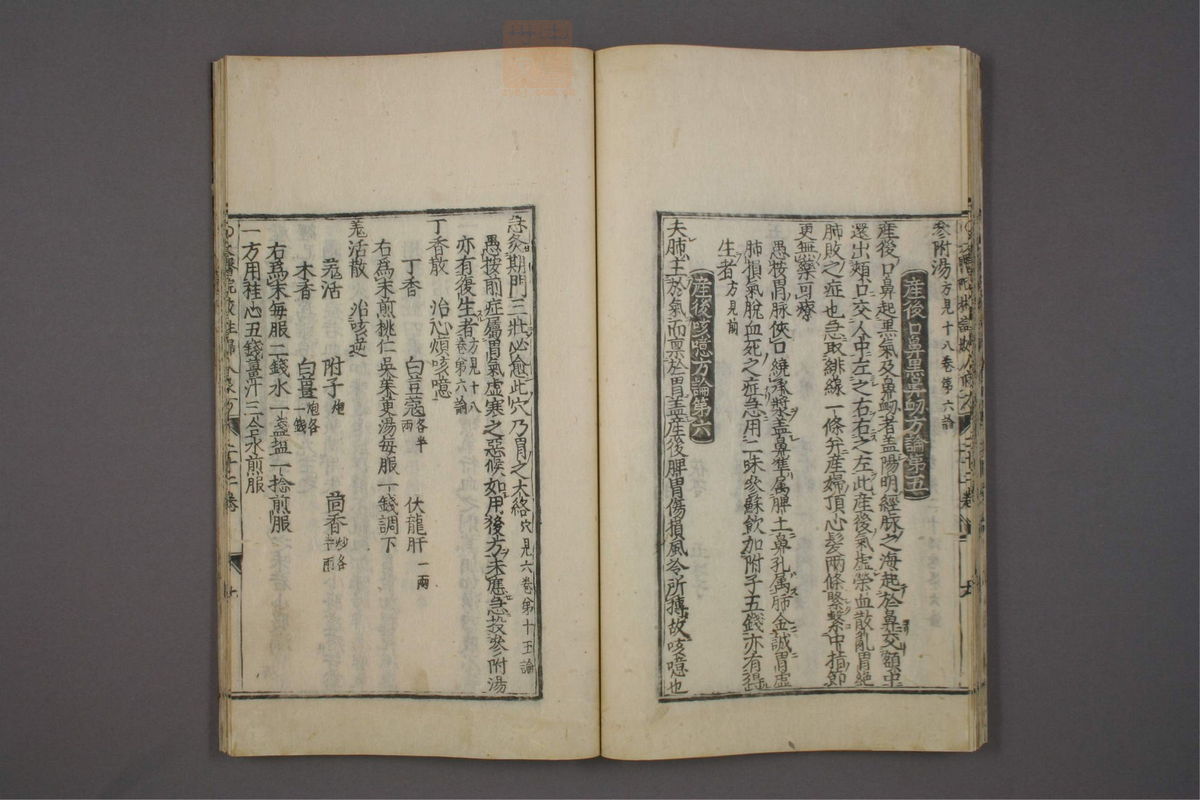 參附湯方見十八卷第六論
產後口鼻黑鼻衂方論第五
產後口鼻起黑氣及鼻衂者盖陽明經脉之海起於鼻交頞中
還出頰口交人中左之右右之左此產後氣虛榮血散亂胃絶
肺敗之症也急取緋線一條弁產婦頂心髮兩條緊繫中指節
更無藥可療
愚按胃脉俠口繞承漿盖鼻準属脾土鼻孔属肺金誠胃虛
肺損氣脫血死之症急用二味參蘇飲加附子五錢亦有得
生者方見前
產後咳噫方論第六
夫肺主於氣而禀於胃盖產後脾胃傷損風冷所搏故咳噫也
急灸期門三壯必愈此穴乃胃之大絡穴見六卷第十五論
愚按前症屬胃氣虛寒之惡候如用後方未應急投參附湯
亦有復生者方見十八卷第六論
丁香散 治心煩咳噫
丁香 白豆蔻各半兩 伏龍肝一兩
右爲末煎桃仁吳茱萸湯每服一錢調下
羗活散 治咳逆
羗活 附子炮 茴香炒各半兩
木香 白薑炮各一錢
右爲末每服二錢水一盞塩一捻煎服
一方用桂心五錢薑汁三合水煎服